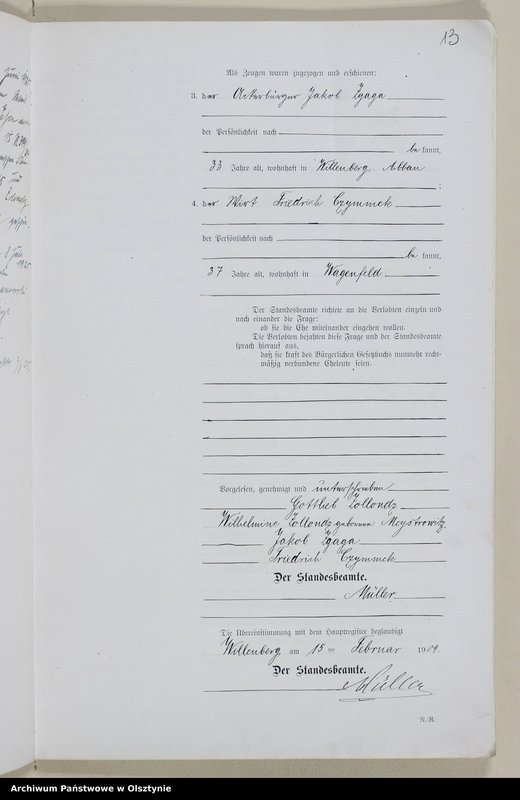 13
Als Zeugen waren zugezogen und erschienen:
3. der Ackerbürger Jakob Zgaga
der Persönlichkeit nach
be kannt,
33 Jahre alt, wohnhaft in Willenberg Abbau
;
4. der Wirt Friedrich Czymmek
der Persönlichkeit nach
be kannt,
37 Jahre alt, wohnhaft in Wagenfeld
.
Der Standesbeamte richtete an die Verlobten einzeln und
nach einander die Frage:
ob sie die Ehe miteinander eingehen wollen.
Die Verlobten bejahten diese Frage und der Standesbeamte
sprach hierauf aus,
daß sie kraft des Bürgerlichen Gesetzbuchs nunmehr recht-
mäßig verbundene Eheleute seien.
Vorgelesen, genehmigt und unterschrieben
Gottlieb Zollondz
Wilhelmine Zollondz geborene Meystrowitz
Jakob Zgaga
Friedrich Czymmek
Der Standesbeamte.
Müller
Die Übereinstimmung mit dem Hauptregister beglaubigt
Willenberg, am 15 ten Februar 1909.
Der Standesbeamte.
Müller
N.-R.
Archiwum Państwowe w Olsztynie